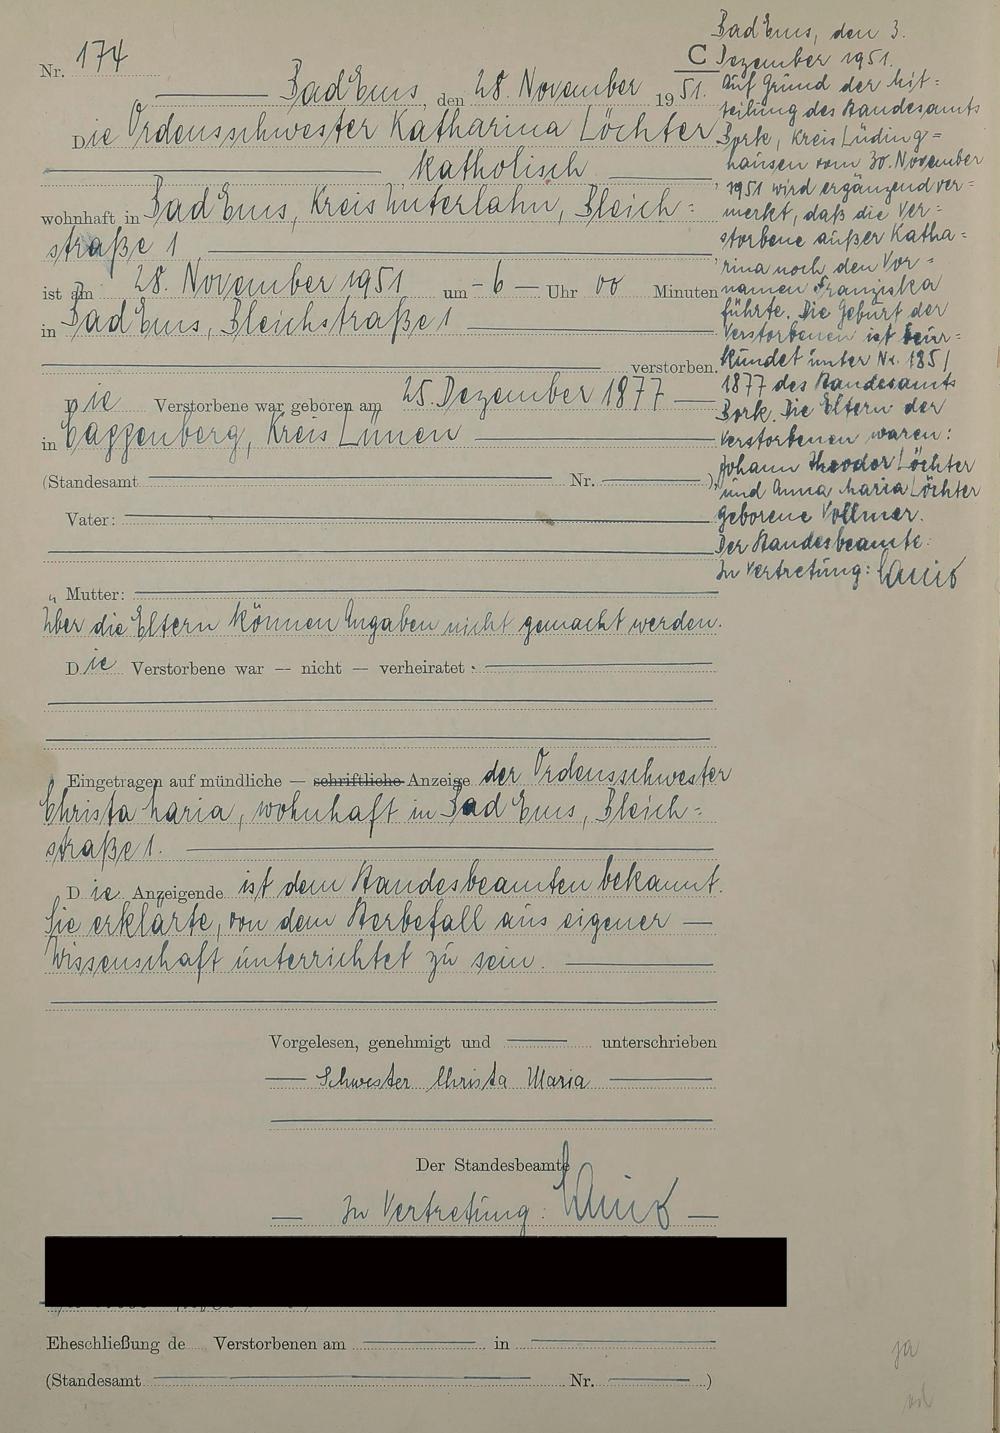 Nr. 174
C
Bad Ems, den 28. November 1951.
Die Ordensschwester Katharina Löchter
katholisch
wohnhaft in Bad Ems, Kreis Unterlahn, Bleich=
straße 1
ist am 28. November 1951 um - 6 - Uhr 00 Minuten
in Bad Ems, Bleichstraße 1
verstorben.
Die Verstorbene war geboren am 25. Dezember 1877
in Cappenberg, Kreis Lünen
(Standesamt Nr. )
Vater:
Mutter:
Über die Eltern können Angaben nicht gemacht werden.
Die Verstorbene war — nicht — verheiratet
Eingetragen auf mündliche — schriftliche Anzeige der Ordensschwester
Christa Maria, wohnhaft in Bad Ems, Bleich=
straße 1.
Die Anzeigende ist dem Standesbeamten bekannt.
Sie erklärte, von dem Sterbefall aus eigener
Wissenschaft unterrichtet zu sein.
Vorgelesen, genehmigt und unterschrieben
Schwester Christa Maria
Der Standesbeamte
In Vertretung:
Eheschließung de Verstorbenen am in
(Standesamt Nr. )
Bad Ems, den 3.
Dezember 1951.
Auf Grund der Mit=
teilung des Standesamts
Bork, Kreis Lüding=
hausen vom 30. November
1951 wird ergänzend ver=
merkt, daß die Ver=
storbene außer Katha=
rina noch den Vor=
namen Franziska
führte. Die Geburt der
Verstorbenen ist beur=
kundet unter Nr. 185/
1877 des Standesamts
Bork. Die Eltern der
Verstorbenen waren:
Johann Theodor Löchter
und Anna Maria Löchter
geborene Vollmer.
Der Standesbeamte:
In Vertretung:
ja